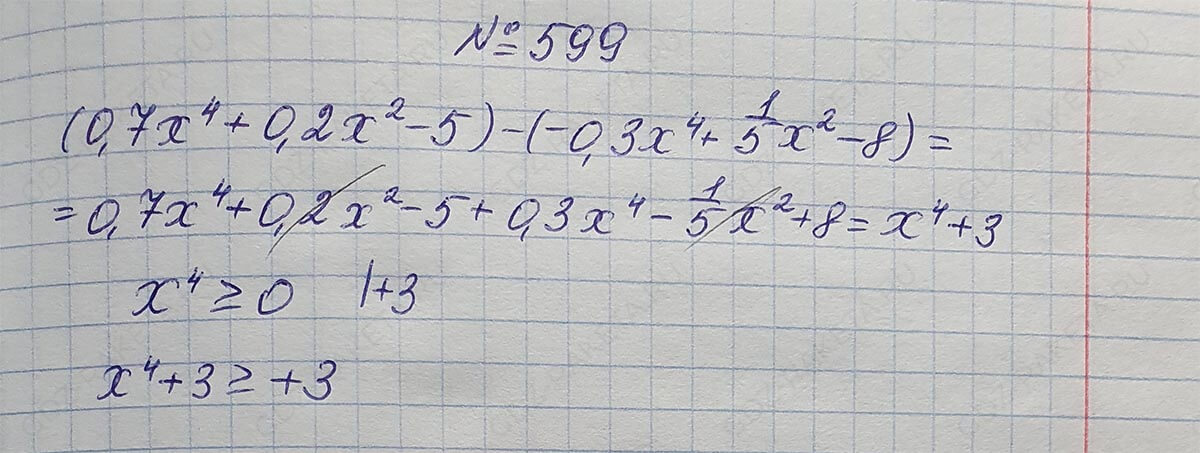 № 599
(0,7x⁴ + 0,2x² - 5) - (-0,3x⁴ + 1/5 x² - 8) =
= 0,7x⁴ + 0,2x² - 5 + 0,3x⁴ - 1/5 x² + 8 = x⁴ + 3
x⁴ ≥ 0 |+3
x⁴ + 3 ≥ +3